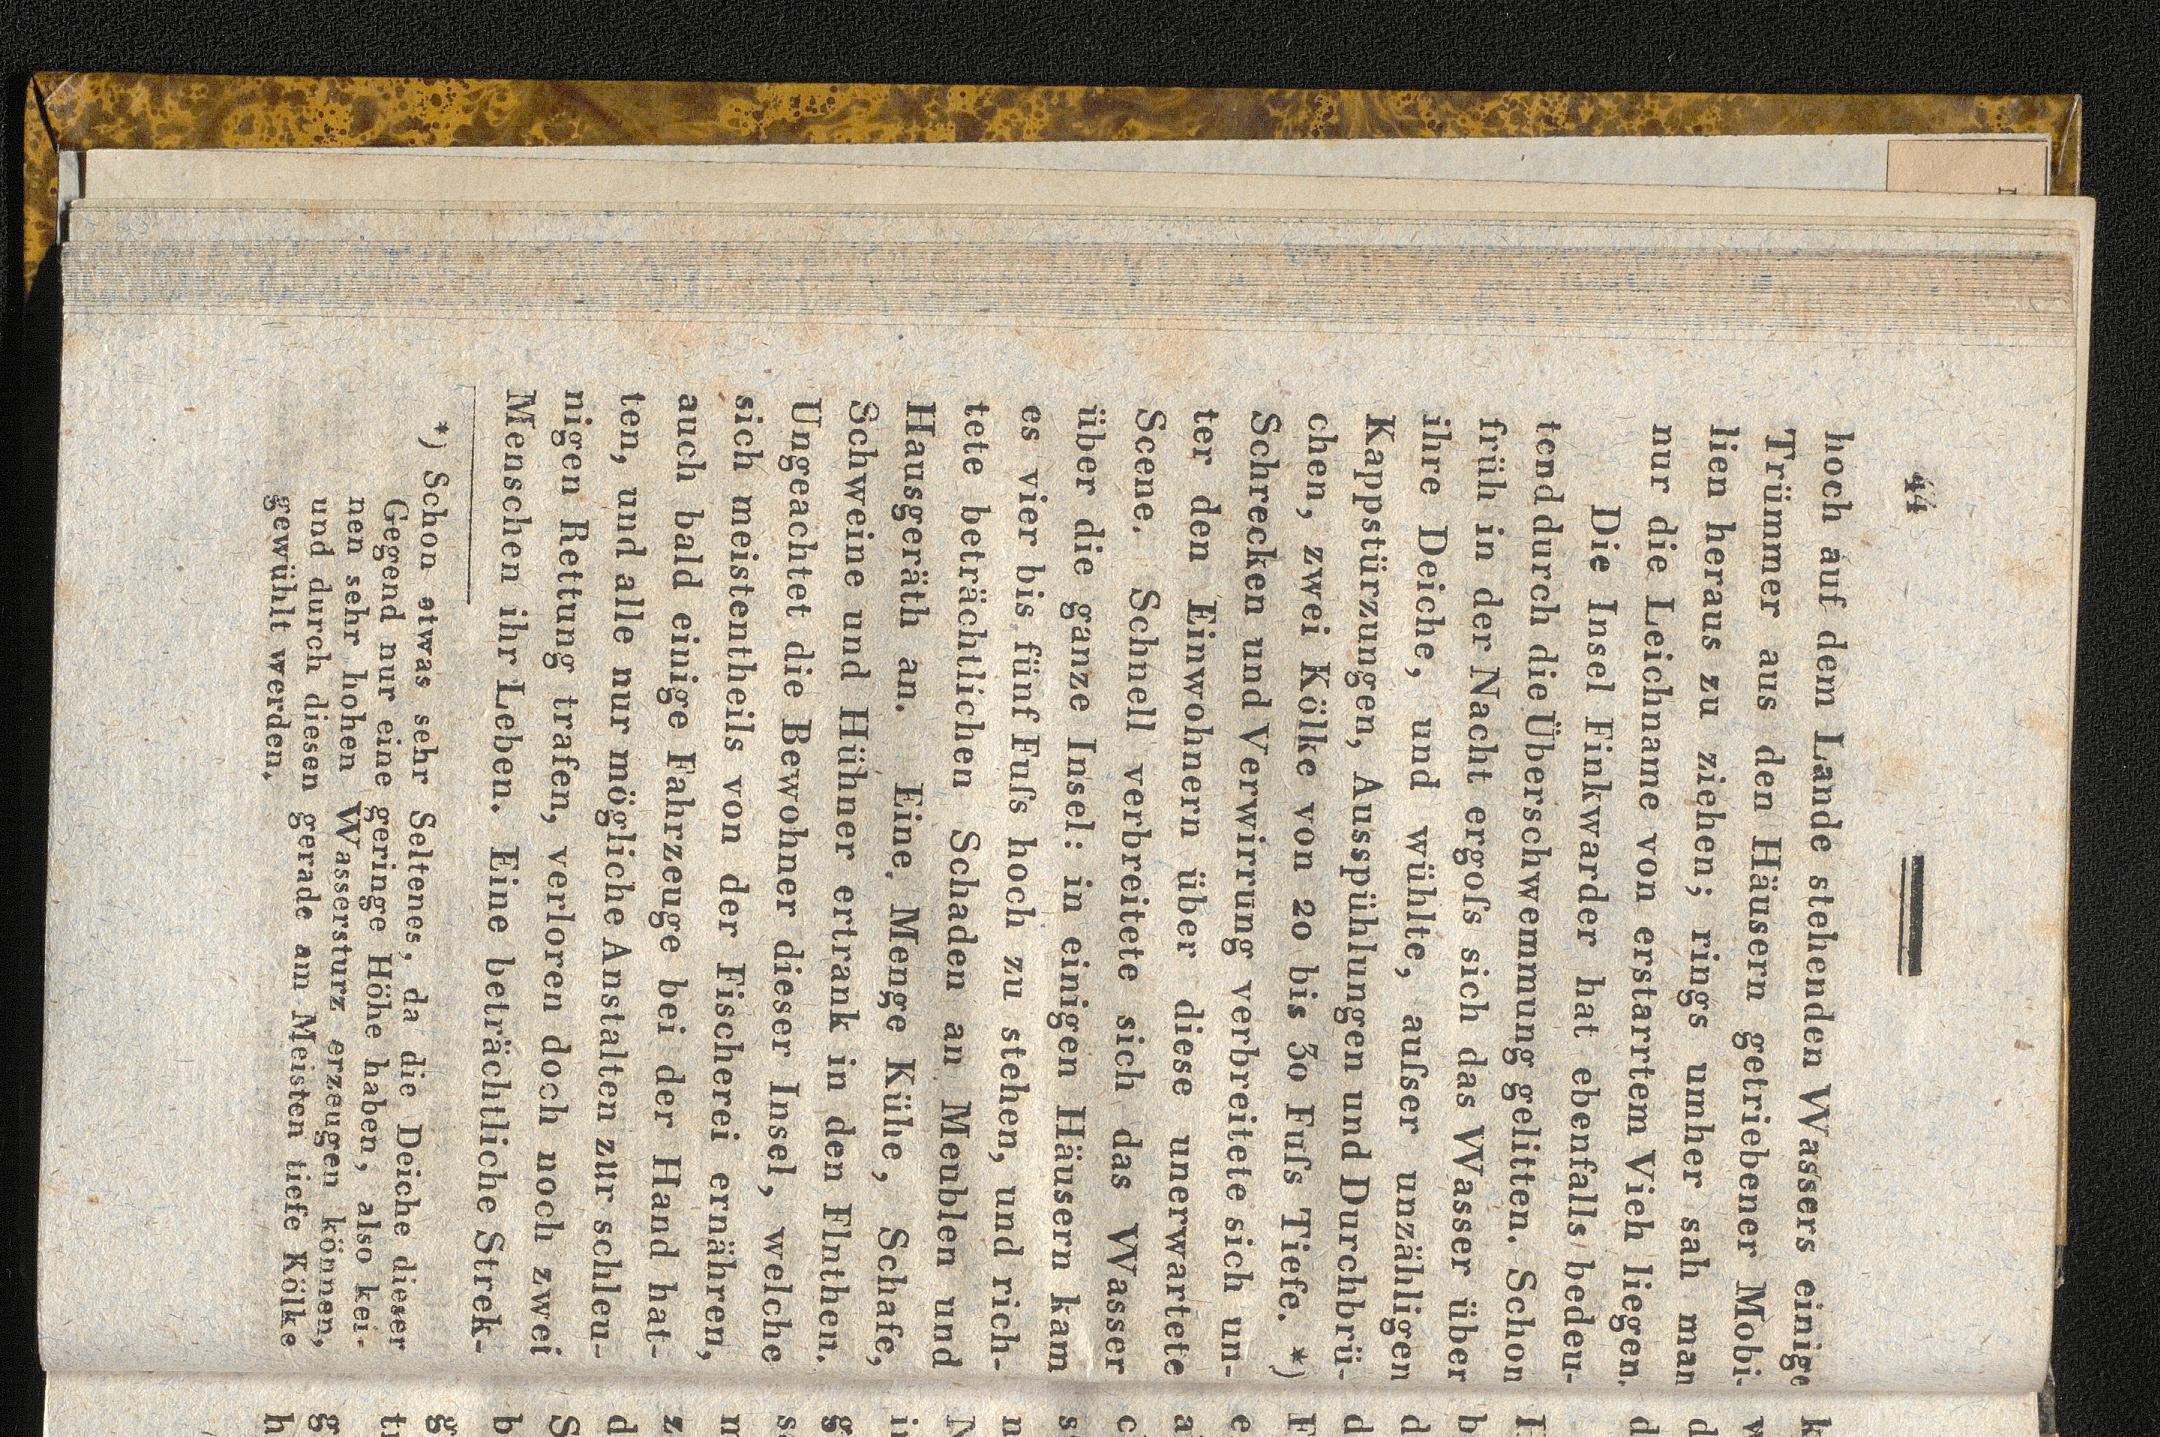 44
hoch auf dem Lande stehenden Wassers einige
Trümmer aus den Häusern getriebener Mobi-
lien heraus zu ziehen; rings umher sah man
nur die Leichname von erstarrtem Vieh liegen.
Die Insel Finkwarder hat ebenfalls bedeu-
tend durch die Überschwemmung gelitten. Schon
früh in der Nacht ergoſs sich das Wasser über
ihre Deiche, und wühlte, auſser unzähligen
Kappstürzungen, Ausspühlungen und Durchbrü-
chen, zwei Kölke von 20 bis 30 Fuſs Tiefe. *)
Schrecken und Verwirrung verbreitete sich un-
ter den Einwohnern über diese unerwartete
Scene. Schnell verbreitete sich das Wasser
über die ganze Insel: in einigen Häusern kam
es vier bis fünf Fuſs hoch zu stehen, und rich-
tete beträchtlichen Schaden an Meublen und
Hausgeräth an. Eine Menge Kühe, Schafe,
Schweine und Hühner ertrank in den Flnthen.
Ungeachtet die Bewohner dieser Insel, welche
sich meistentheils von der Fischerei ernähren,
auch bald einige Fahrzeuge bei der Hand hat-
ten, und alle nur mögliche Anstalten zur schleu-
nigen Rettung trafen, verloren doch noch zwei
Menschen ihr Leben. Eine beträchtliche Strek-
*) Schon etwas sehr Seltenes, da die Deiche dieser
Gegend nur eine geringe Höhe haben, also kei-
nen sehr hohen Wassersturz erzeugen können,
und durch diesen gerade am Meisten tiefe Kölke
gewühlt werden.